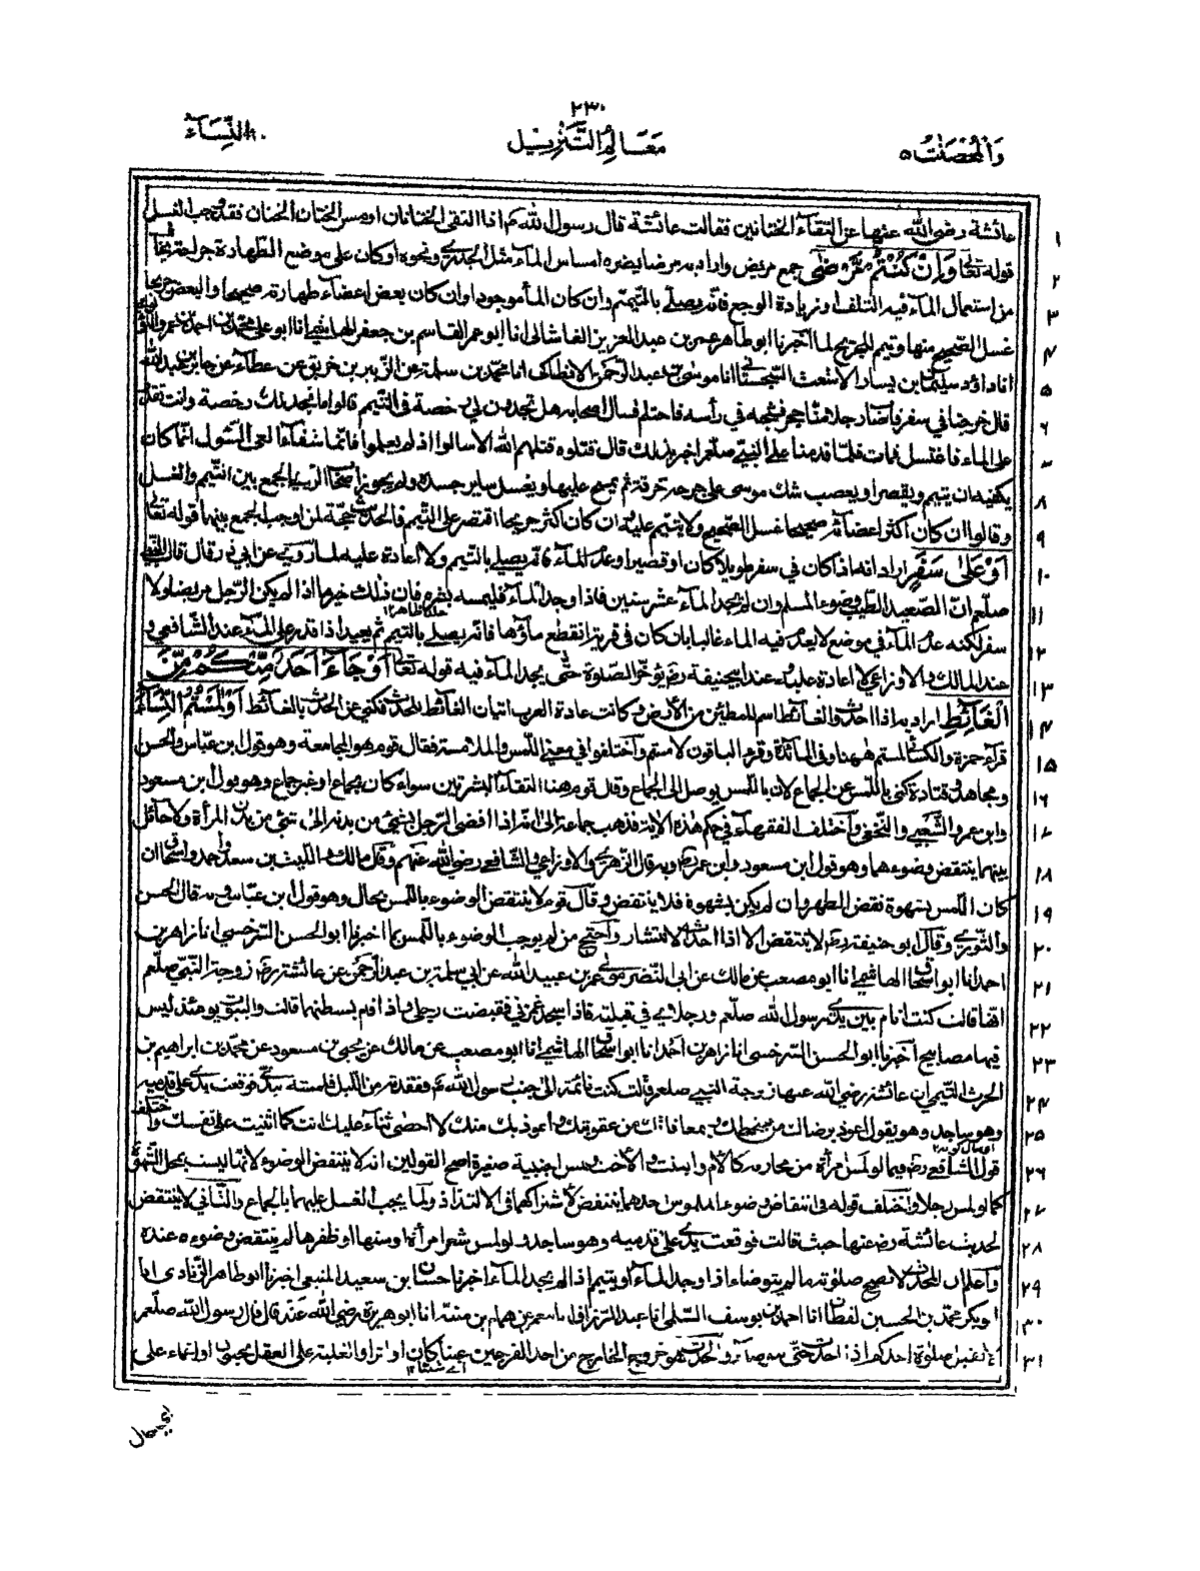 ٢٣٠
وَالْمُحْصَنٰتُ ٥ مَعَالِمُ التَّنْزِيْل النِّسَآء
عائشة رضى الله عنها عن التقاء الختانين فقالت عائشة قال رسول الله صلعم اذا التقى الختانان او مس الختان الختان فقد وجب الغسل ١
قوله تعالى وَاِنْ كُنْتُمْ مَّرْضٰى جمع مريض واراد به مرضا يضره امساس المآء مثل الجدرى ونحوه او كان على موضع الطهارة جراحة يخاف ٢
من استعمال المآء فيه التلف او زيادة الوجع فانه يصلى بالتيمم وان كان المآء موجودا وان كان بعض اعضآء طهارته صحيحا والبعض جريحا ٣
غسل الصحيح منها وتيمم للجريح لما اخبرنا ابو طاهر عمر بن عبد العزيز القاشانى انا ابو عمر القاسم بن جعفر الهاشمى انا ابو على محمد بن احمد بن عمرو اللؤلؤى ٤
انا داؤد سليمان بن الاشعث السجستانى انا موسى بن عبد الرحمن الانطاكى انا محمد بن سلمة عن الزبير بن خريق عن عطآء عن جابر بن عبد الله ٥
قال خرجنا فى سفر فاصاب رجلا منا حجر فشجه فى رأسه فاحتلم فسال اصحابه هل تجدون لى رخصة فى التيمم قالوا ما نجد لك رخصة وانت تقدر ٦
على الماء فاغتسل فمات فلما قدمنا على النبى صلعم اخبر بذلك قال قتلوه قتلهم الله الا سالوا اذ لم يعلموا فانما شفآء العى السؤل انما كان ٧
يكفيه ان يتيمم ويعصر او يعصب شك موسى على جرحه خرقة ثم يمسح عليها ويغسل ساير جسده ولم يجوز اصحاب الرأى الجمع بين التيمم والغسل ٨
وقالوا ان كان اكثر اعضآئه صحيحا غسل الصحيح ولا يتيمم عليه وان كان اكثر جريحا اقتصر على التيمم فالحديث حجة لمن اوجب الجمع بينهما قوله تعالى ٩
اَوْ عَلٰى سَفَرٍ اراد انه اذا كان فى سفر طويلا كان او قصيرا وعدم المآء فانه يصلى بالتيمم ولا اعادة عليه لما روى عن ابى ذر قال قال النبى ١٠
صلعم ان الصعيد الطيب وضوء المسلم وان لم يجد المآء عشر سنين فاذا وجد المآء فليمسه بشره فان ذلك خير اما اذا لم يكن الرجل مريضا ولا ١١
سفر لكنه عدم المآء فى موضع لا يعدم فيه الماء غالبا بان كان فى قرية انقطع مآؤها فانه يصلى بالتيمم ثم يعيد اذا قدر على المآء عند الشافعى و ١٢
عند المالك والاوزاعى لا اعادة عليه وعند ابى حنيفة رض يؤخر الصلوة حتى يجد المآء فيه قوله تعالى اَوْ جَآءَ اَحَدٌ مِّنْكُمْ مِّنَ ١٣
الْغَآئِطِ اراد به اذا احدث والغائط اسم للمطمئن من الارض وكانت عادة العرب اتيان الغآئط للحدث فكنى عن الحدث بالغائط اَوْ لٰمَسْتُمُ النِّسَآءَ ١٤
قرأ حمزة والكسائى لمستم ههنا وفى المآئدة وقرء الباقون لامستم واختلفوا فى معنى اللمس والملامسة فقال قوم هو المجامعة وهو قول ابن عباس والحسن ١٥
ومجاهد وقتادة كنى باللمس عن الجماع لان باللمس يوصل الى الجماع وقال قوم هنا التقآء البشرتين سواء كان بجماع او غير جماع وهو قول ابن مسعود ١٦
وابن عمر والشعبى والنخعى واختلف الفقهاء فى حكم هذه الاية فذهب جماعة الى انه اذا افضى الرجل بشئ من بدنه الى شئ من بدن المرأة ولا حائل ١٧
بينهما ينتقض وضوءهما وهو قول ابن مسعود وابن عمر وبه قال الزهرى والاوزاعى والشافعى رضى الله عنهم وقال مالك والليث بن سعد واحمد واسحاق ان ١٨
كان اللمس بشهوة نقض الطهر وان لم يكن بشهوة فلا ينتقض وقال قوم لا ينتقض الوضوء باللمس بحال وهو قول ابن عباس وبه قال الحسن ١٩
والثورى وقال ابو حنيفة رض لا ينتقض الا اذا احدث الانتشار واحتج من لم يوجب الوضوء باللمس بما اخبرنا ابو الحسن السرخسى انا زاهر بن ٢٠
احمد انا ابو اسحاق الهاشمى انا ابو مصعب عن مالك عن ابى النضر مولى عمر بن عبيد الله عن ابى سلمة بن عبد الرحمن عن عائشة رض زوجة النبى صلعم ٢١
انها قالت كنت انام بين يدى رسول الله صلعم ورجلاى فى قبلته فاذا سجد غمزنى فقبضت رجلى واذا قام بسطتهما قالت والبيوت يومئذ ليس ٢٢
فيها مصابيح اخبرنا ابو الحسن السرخسى انا زاهر بن احمد انا ابو اسحاق الهاشمى انا ابو مصعب عن مالك عن يحيى بن مسعود عن محمد بن ابراهيم بن ٢٣
الحرث التيمى ان عائشة رضى الله عنها زوجة النبى صلعم قالت كنت نائمة الى جنب رسول الله صلعم ففقدته من الليل فلمسته بيدى فوقعت يدى على قدميه ٢٤
وهو ساجد وهو يقول اعوذ برضاك من سخطك وبمعافاتك من عقوبتك واعوذ بك منك لا احصى ثنآء عليك انت كما اثنيت على نفسك واختلف ٢٥
قول الشافعى رض فيما لو لمس امرأة من محارمه كالام والبنت والاخت او لمس اجنبية صغيرة اصح القولين انه لا ينتقض الوضوء لانها ليست بمحل الشهوة ٢٦
كما لو لمس رجلا واختلف قوله فى انتقاض وضوء الملموس احدهما ينتقض لاشتراكهما فى الالتذاذ ولما يجب الغسل عليهما بالجماع والثانى لا ينتقض ٢٧
لحديث عائشة رض عنها حيث قالت فوقعت يدى على قدميه وهو ساجد ولو لمس شعر امرأة او سنها او ظفرها لم ينتقض وضوءه عنده ٢٨
واعلم ان المحدث لا تصح صلوته ما لم يتوضاء اذا وجد المآء او يتيمم اذا لم يجد المآء اخبرنا حسان بن سعيد المنيعى اخبرنا ابو طاهر الزيادى انا ٢٩
ابو بكر محمد بن الحسين القطان انا احمد بن يوسف السلمى انا عبد الرزاق انا معمر عن همام بن منبه انا ابو هريرة رضى الله عنه قال قال رسول الله صلعم ٣٠
لا تقبل صلوة احدكم اذا احدث حتى يتوضآء والحدث هو خروج الخارج من احد الفرجين عينا كان او اثرا والغلبة على العقل بجنون او اغماء على ٣١